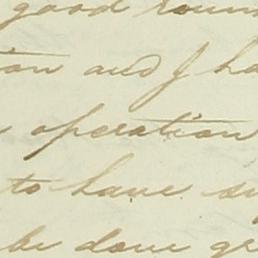 good roun
ion and I ha
operation
to have su
be done gr